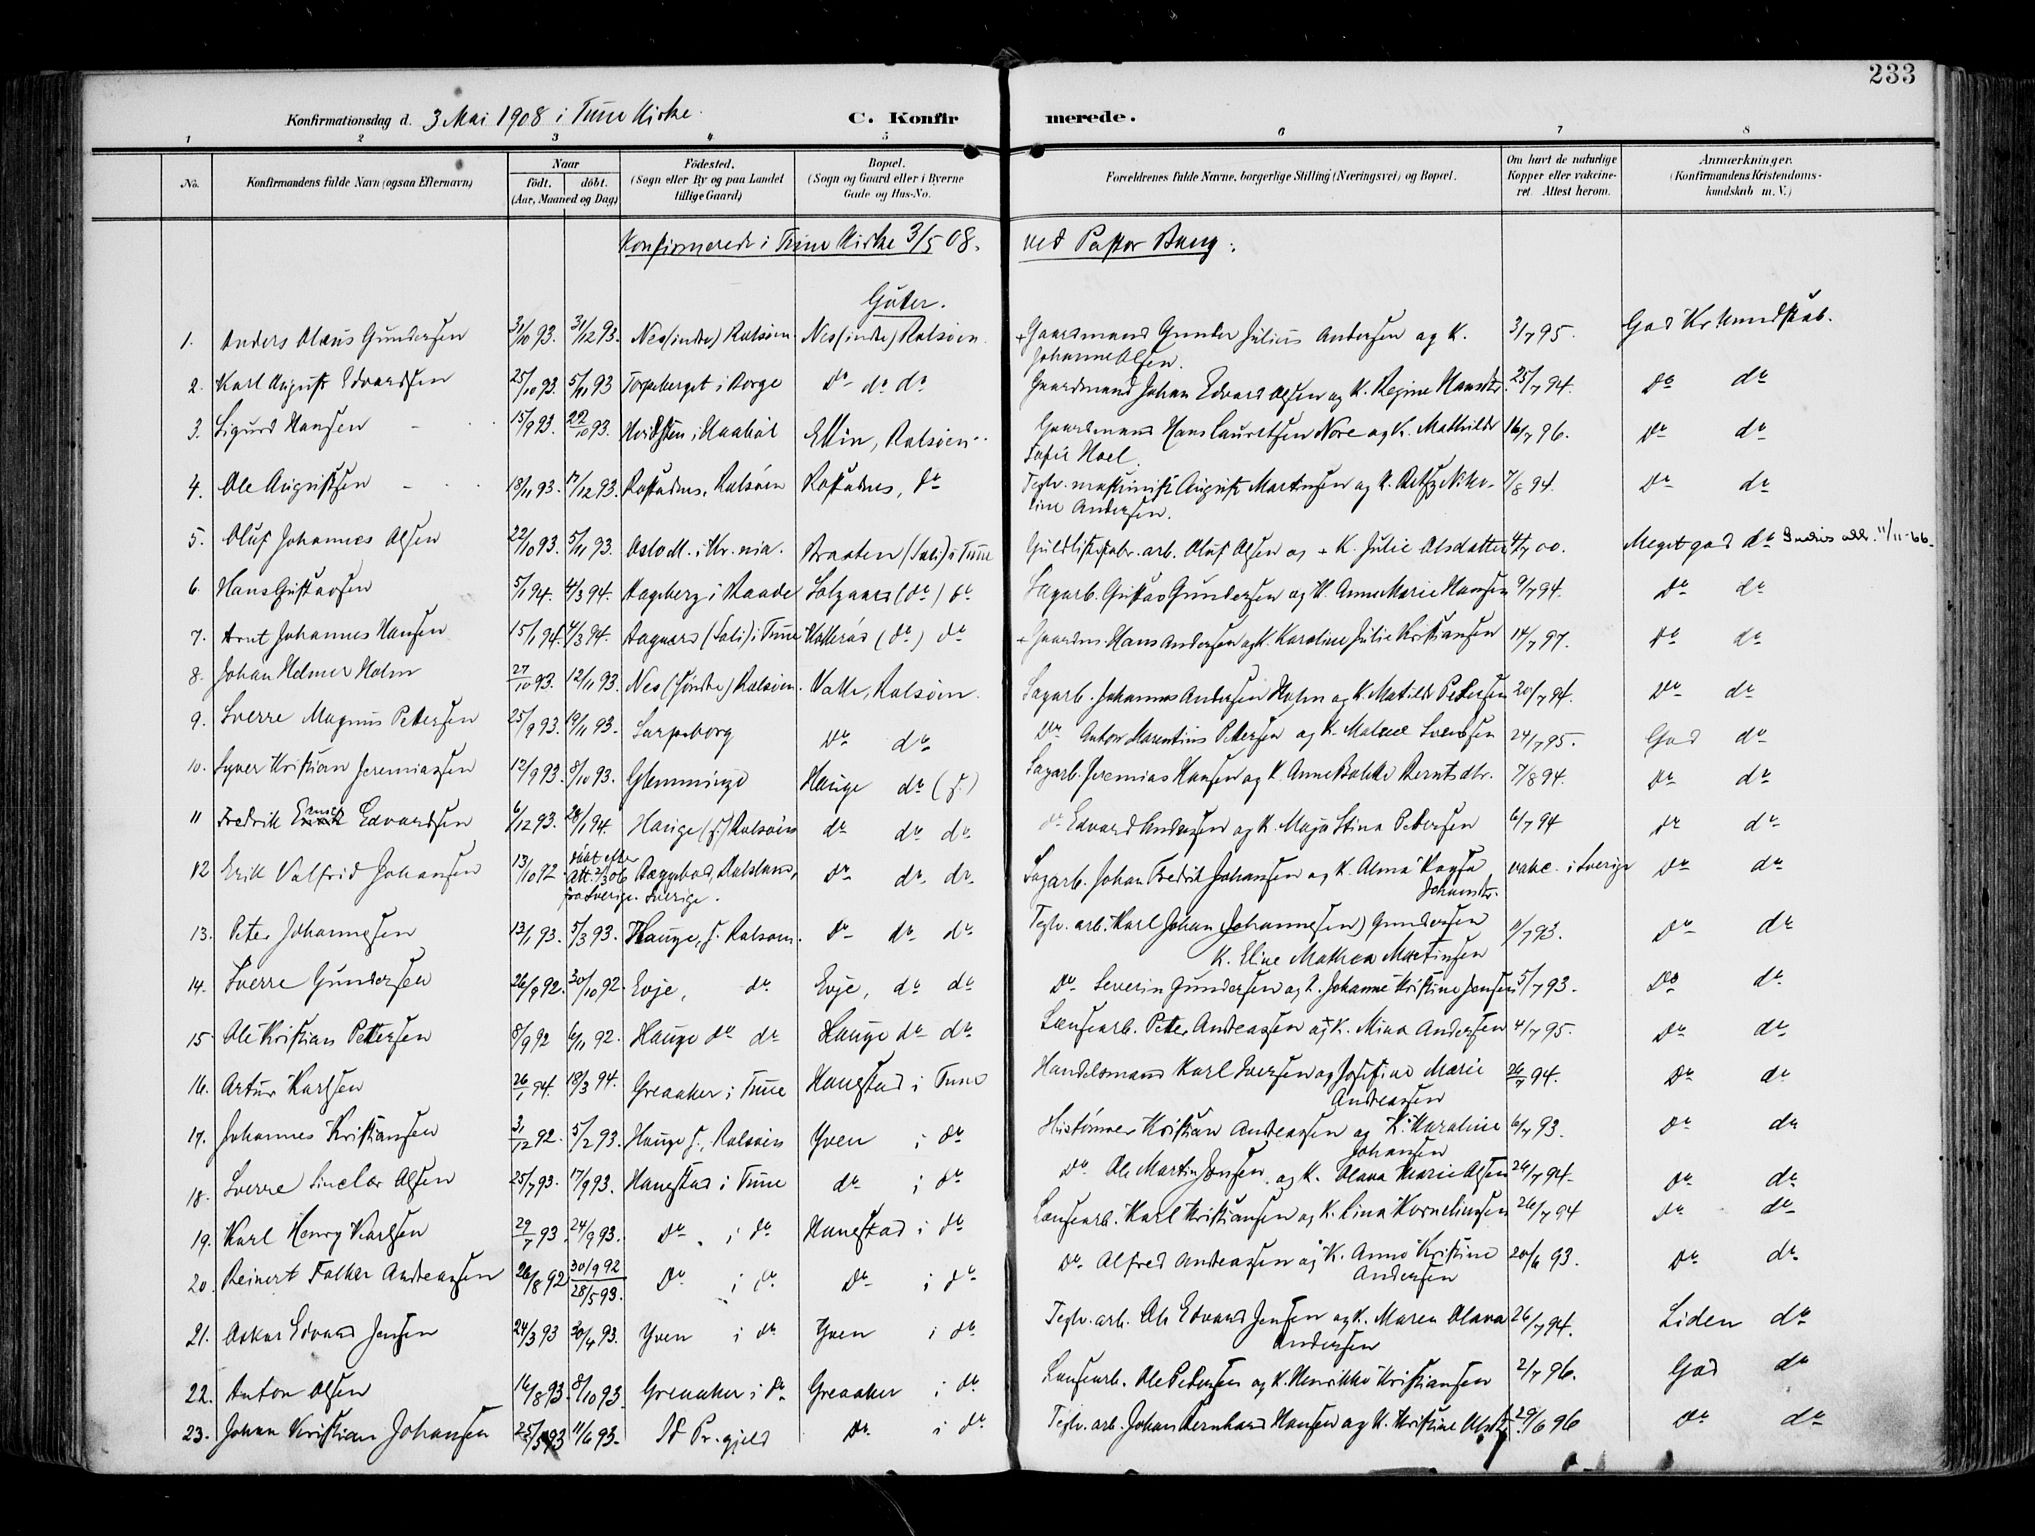 233
Konfirmationsdag d. 3 Mai 1908 i Tune Kirke.
C. Konfirmerede.
1 2 3 4 5 6 7 8
No.
Konfirmandens fulde Navn (ogsaa Efternavn)
Naar
födt. döbt.
(Aar, Maaned og Dag)
Födested.
(Sogn eller By og paa Landet
tillige Gaard)
Bopæl.
(Sogn og Gaard eller i Byerne
Gade og Hus-No.
Forældrenes fulde Navne, borgerlige Stilling (Næringsvei) og Bopæl.
Om havt de naturlige
Kopper eller vakcine-
ret. Attest herom.
Anmærkninger.
(Konfirmandens Kristendoms-
kundskab m. V.)
Konfirmerede i Tune Kirke 3/5 08. ved Pastor Bang.
Gutter.
1. Anders Olaus Gundersen 31/10 93. 31/12 93. Nes (indre) Rolsöen Nes (indre) Rolsöen. + Gaardmand Gunder Julius Andersen og K. 3/7 95. God Kr. kundskab.
Johanne Olsen.
2. Karl August Edvardsen 25/10 93. 5/11 93 Torpeberget i Borge do do do Gaardmand Johan Edvard Olsen og K. Regine Hansdtr. 25/7 94. do do
3. Sigurd Hansen 15/9 93. 22/10 93. Hvidsten i Raaböl Ellin, Rolsöen. Gaardmand Hans Lauretsen Nore og K. Mathilde 16/7 96. do do
Sofie Hoel.
4. Ole Augustsen 18/11 93. 17/12 93. Rostadnes, Rolsöen Rostadnes, do Teglv. maskinist August Martinsen og K. Betzy Niko- 7/8 94. do do
line Andersen.
5. Oluf Johannes Olsen 22/10 93. 5/11 93. Oslo M. i Kr.nia. Braaten (Soli) i Tune Guldlistefabr. arb. Oluf Olsen og + K. Julie Olsdatter 4/7 00. Meget god do 11/11-66.
6. Hans Gustavsen 5/1 94. 4/3 94. Aageberg i Raade Solgaard (do) do Sagarb. Gustav Gundersen og K. Anne Marie Hansen 9/7 94. do do
7. Arnt Johannes Hansen 15/1 94. 4/3 94. Aagaard (Soli) i Tune Katterös (do) do + Gaardm. Hans Andersen og K. Karoline Julie Kristiansen 14/7 97. do do
8. Johan Helmer Holm 27/10 93. 12/11 93. Nes (söndre) Rolsöen. Valle, Rolsöen. Sagarb. Johannes Andersen Holm og K. Matilde Petersen 20/7 94. do do
9. Sverre Magnus Petersen 25/9 93. 19/11 93. Sarpsborg do do do Anton Marentius Petersen og K. Malene Svensen 24/7 95. God do
10. Syver Kristian Jeremiassen 12/9 93. 8/10 93. Glemminge Hauge do (s.) Sagarb. Jeremias Hansen og K. Anne Bolette Berntsdtr. 7/8 94. do do
11 Fredrik Ernst Edvardsen 6/12 93. 28/1 94. Hauge (s.) Rolsöen do do do do Edvard Andersen og K. Maja Stina Petersen 6/7 94 do do
12 Erik Valfrid Johansen 13/10 92 döbt efter
Att. 2/3 06
fra Sverige. Sverige. do do do Sagarb. Johan Fredrik Johansen og K. Alma Kaysa vakc. i Sverige do do
Johansdtr.
13. Peter Johannesen 13/1 93. 5/3 93. Hauge, s. Rolsöen. do do do Teglv. arb. Karl Johan (Johannesen) Gundersen 9/7 93. do do
K. Eline Mathea Martinsen
14. Sverre Gundersen 26/9 92. 30/10 92. Evje, do Evje, do do do Severin Gundersen og K. Johanne Kristine Jensen 5/7 93. do do
15 Ole Kristian Pettersen 8/9 92 6/11 92. Hauge do do Hauge do do Landsearb. Peter Andreassen og + K. Mina Andersen 4/7 95. do do
16. Artur Karlsen 26/1 94. 18/3 94. Greaaker i Tune Hanestad i Tune Handelsmand Karl Iversen og Josefine Marie 26/7 94. do do
Andreassen
17. Johannes Kristiansen 31/12 92. 5/2 93. Hauge s., Rolsöen Yven i do Kristian Andreassen og K. Karoline 6/7 93. do do
Johansen
18. Sverre Sinclar Olsen 25/7 93. 17/9 93. Hanestad i Tune do i do do Ole Martin Jensen og K. Olava Marie Olsen 26/7 94. do do
19. Karl Henry Karlsen 29/7 93. 24/9 93. do i do Hanestad i do Landsearb. Karl Kristiansen og K. Lina Korneliussen 26/7 94 do do
20. Reinert Falker Andreassen 26/8 92 30/9 92
28/5 93. do i do do i do do Alfred Andreassen og K. Anna Kristine 20/6 93. do do
Andersen
21. Oskar Edvard Jensen 24/3 93 30/4 93. Yven i do Yven i do Teglv. arb. Ole Edvard Jensen og K. Maren Olava 26/7 94. Liden do
Andersen
22. Anton Olsen 16/8 93. 8/10 93. Greaaker i do Greaaker i do Landsearb. Ole Petersen og K. Henrikke Kristiansen 2/7 96. God do
23. Johan Kristian Johansen 25/3 93 11/6 93. Id Pr.gjeld do i do Teglv. arb. Johan Bernhard Hansen og K. Kristine Olsdtr. 29/6 96 do do